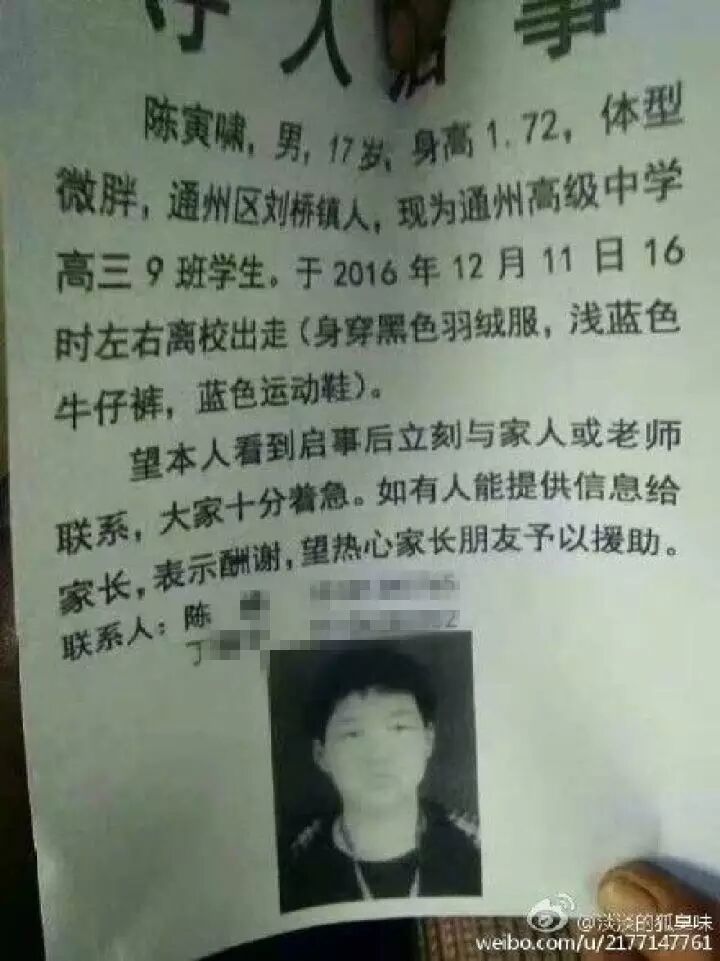 寻人启事
陈寅啸，男，17岁，身高1.72，体型
微胖，通州区刘桥镇人，现为通州高级中学
高三9班学生。于2016年12月11日16
时左右离校出走（身穿黑色羽绒服，浅蓝色
牛仔裤，蓝色运动鞋）。
望本人看到启事后立刻与家人或老师
联系，大家十分着急。如有人能提供信息给
家长，表示酬谢，望热心家长朋友予以援助。
联系人：陈
丁
@淡淡的狐臭味
weibo.com/u/2177147761